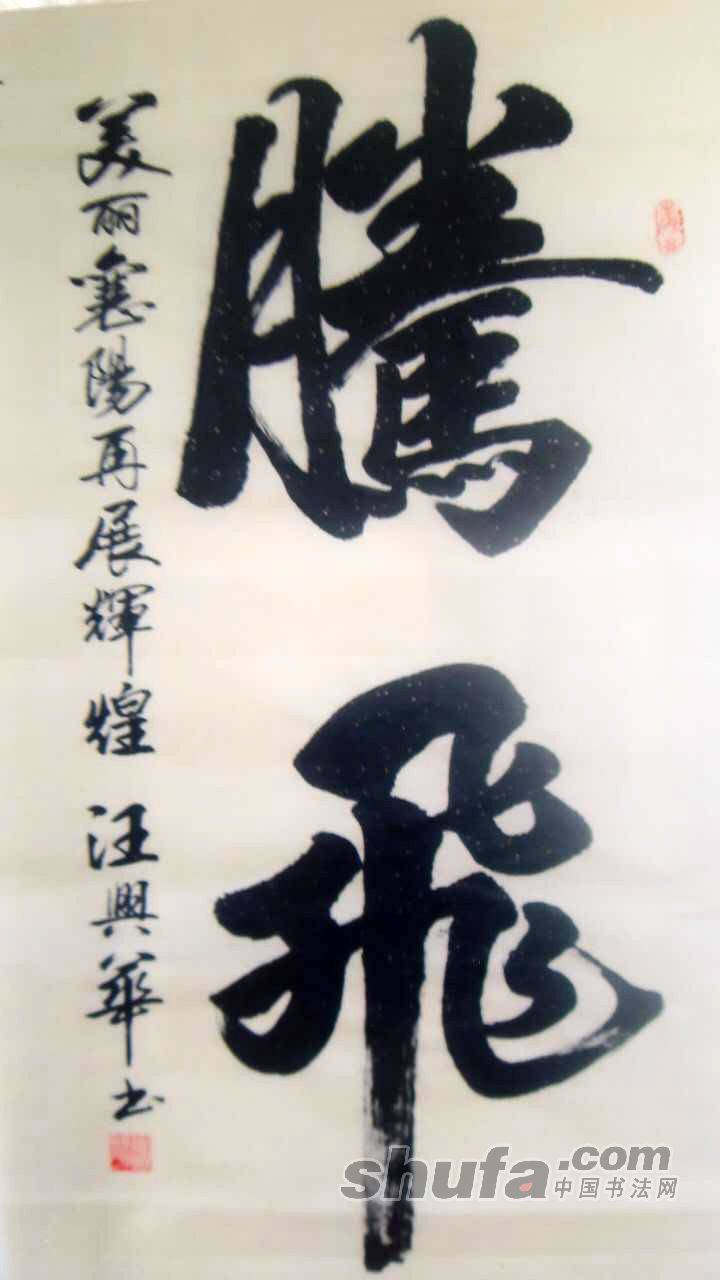 騰飛
美丽襄陽再展輝煌 汪興華书
shufa.com
中国书法网